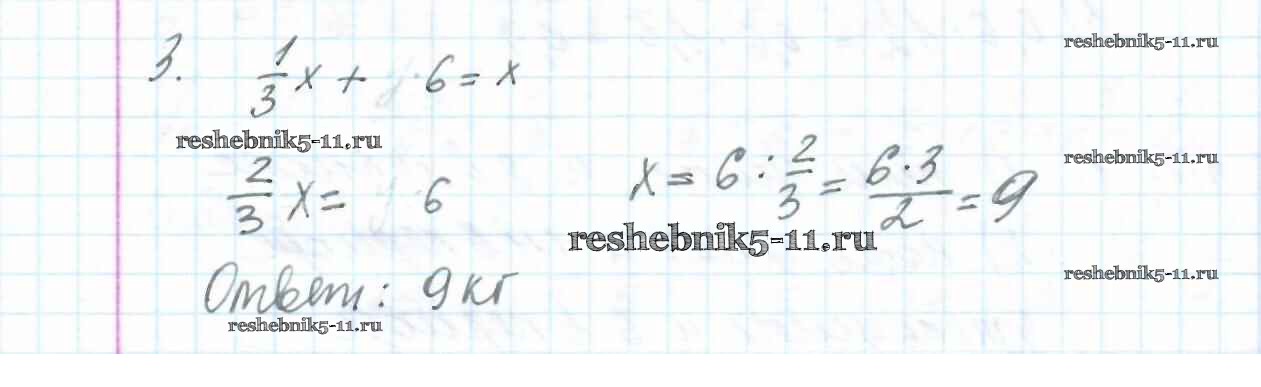 reshebnik5-11.ru
3. 1/3 x + 6 = x
reshebnik5-11.ru
reshebnik5-11.ru
2/3 x = 6
x = 6 : 2/3 = 6·3/2 = 9
reshebnik5-11.ru
reshebnik5-11.ru
Ответ: 9 кг
reshebnik5-11.ru